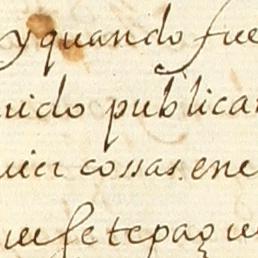 y quando fue
rido publicar
uier cossas. ene
se te pag